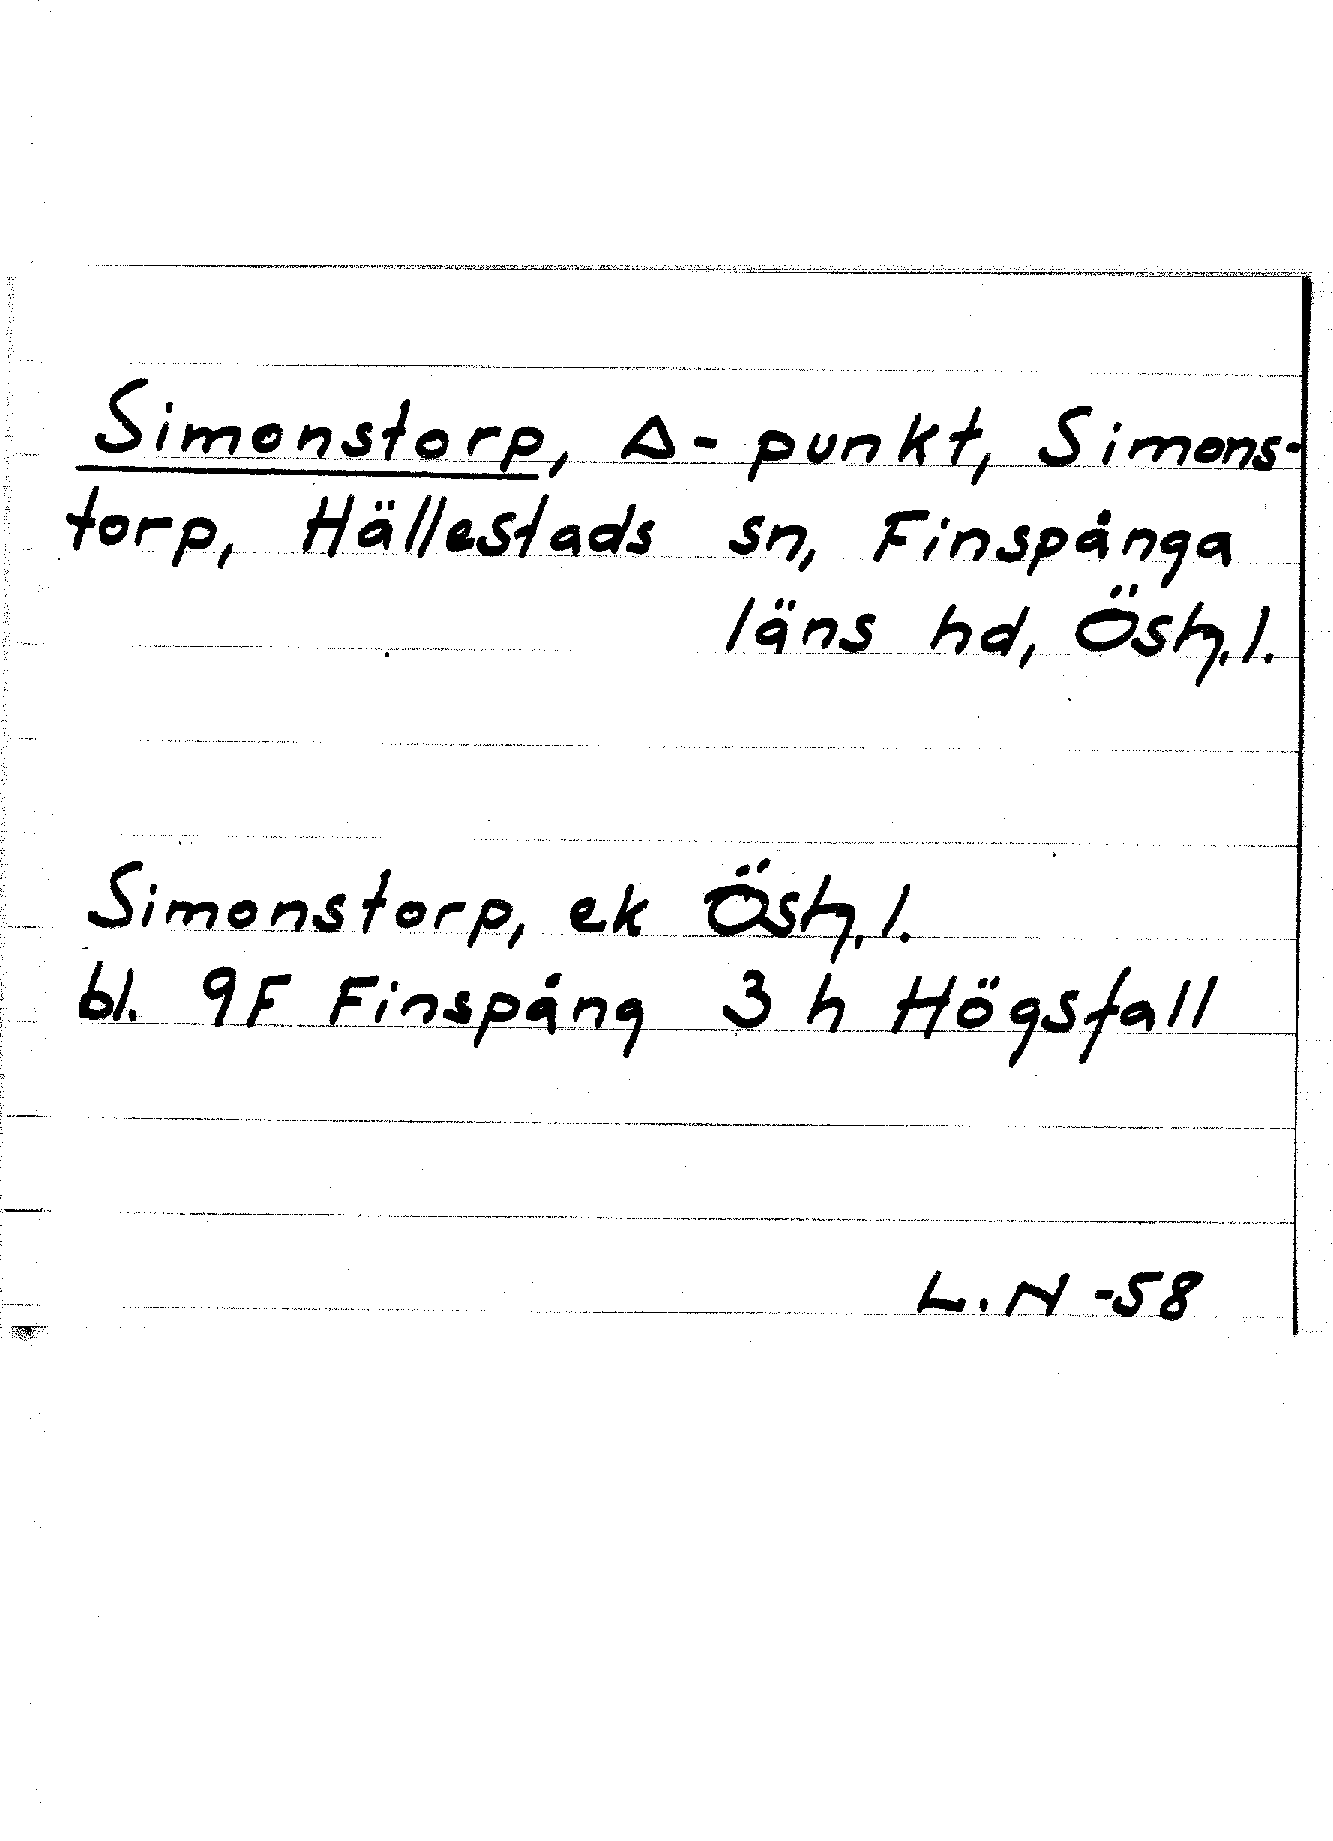 Simonstorp, Δ-punkt, Simons-
torp, Hällestads sn, Finspånga
läns hd, Östg. l.
Simonstorp, ek Östg. l.
bl. 9F Finspång 3 h Högsfall
L. N -58